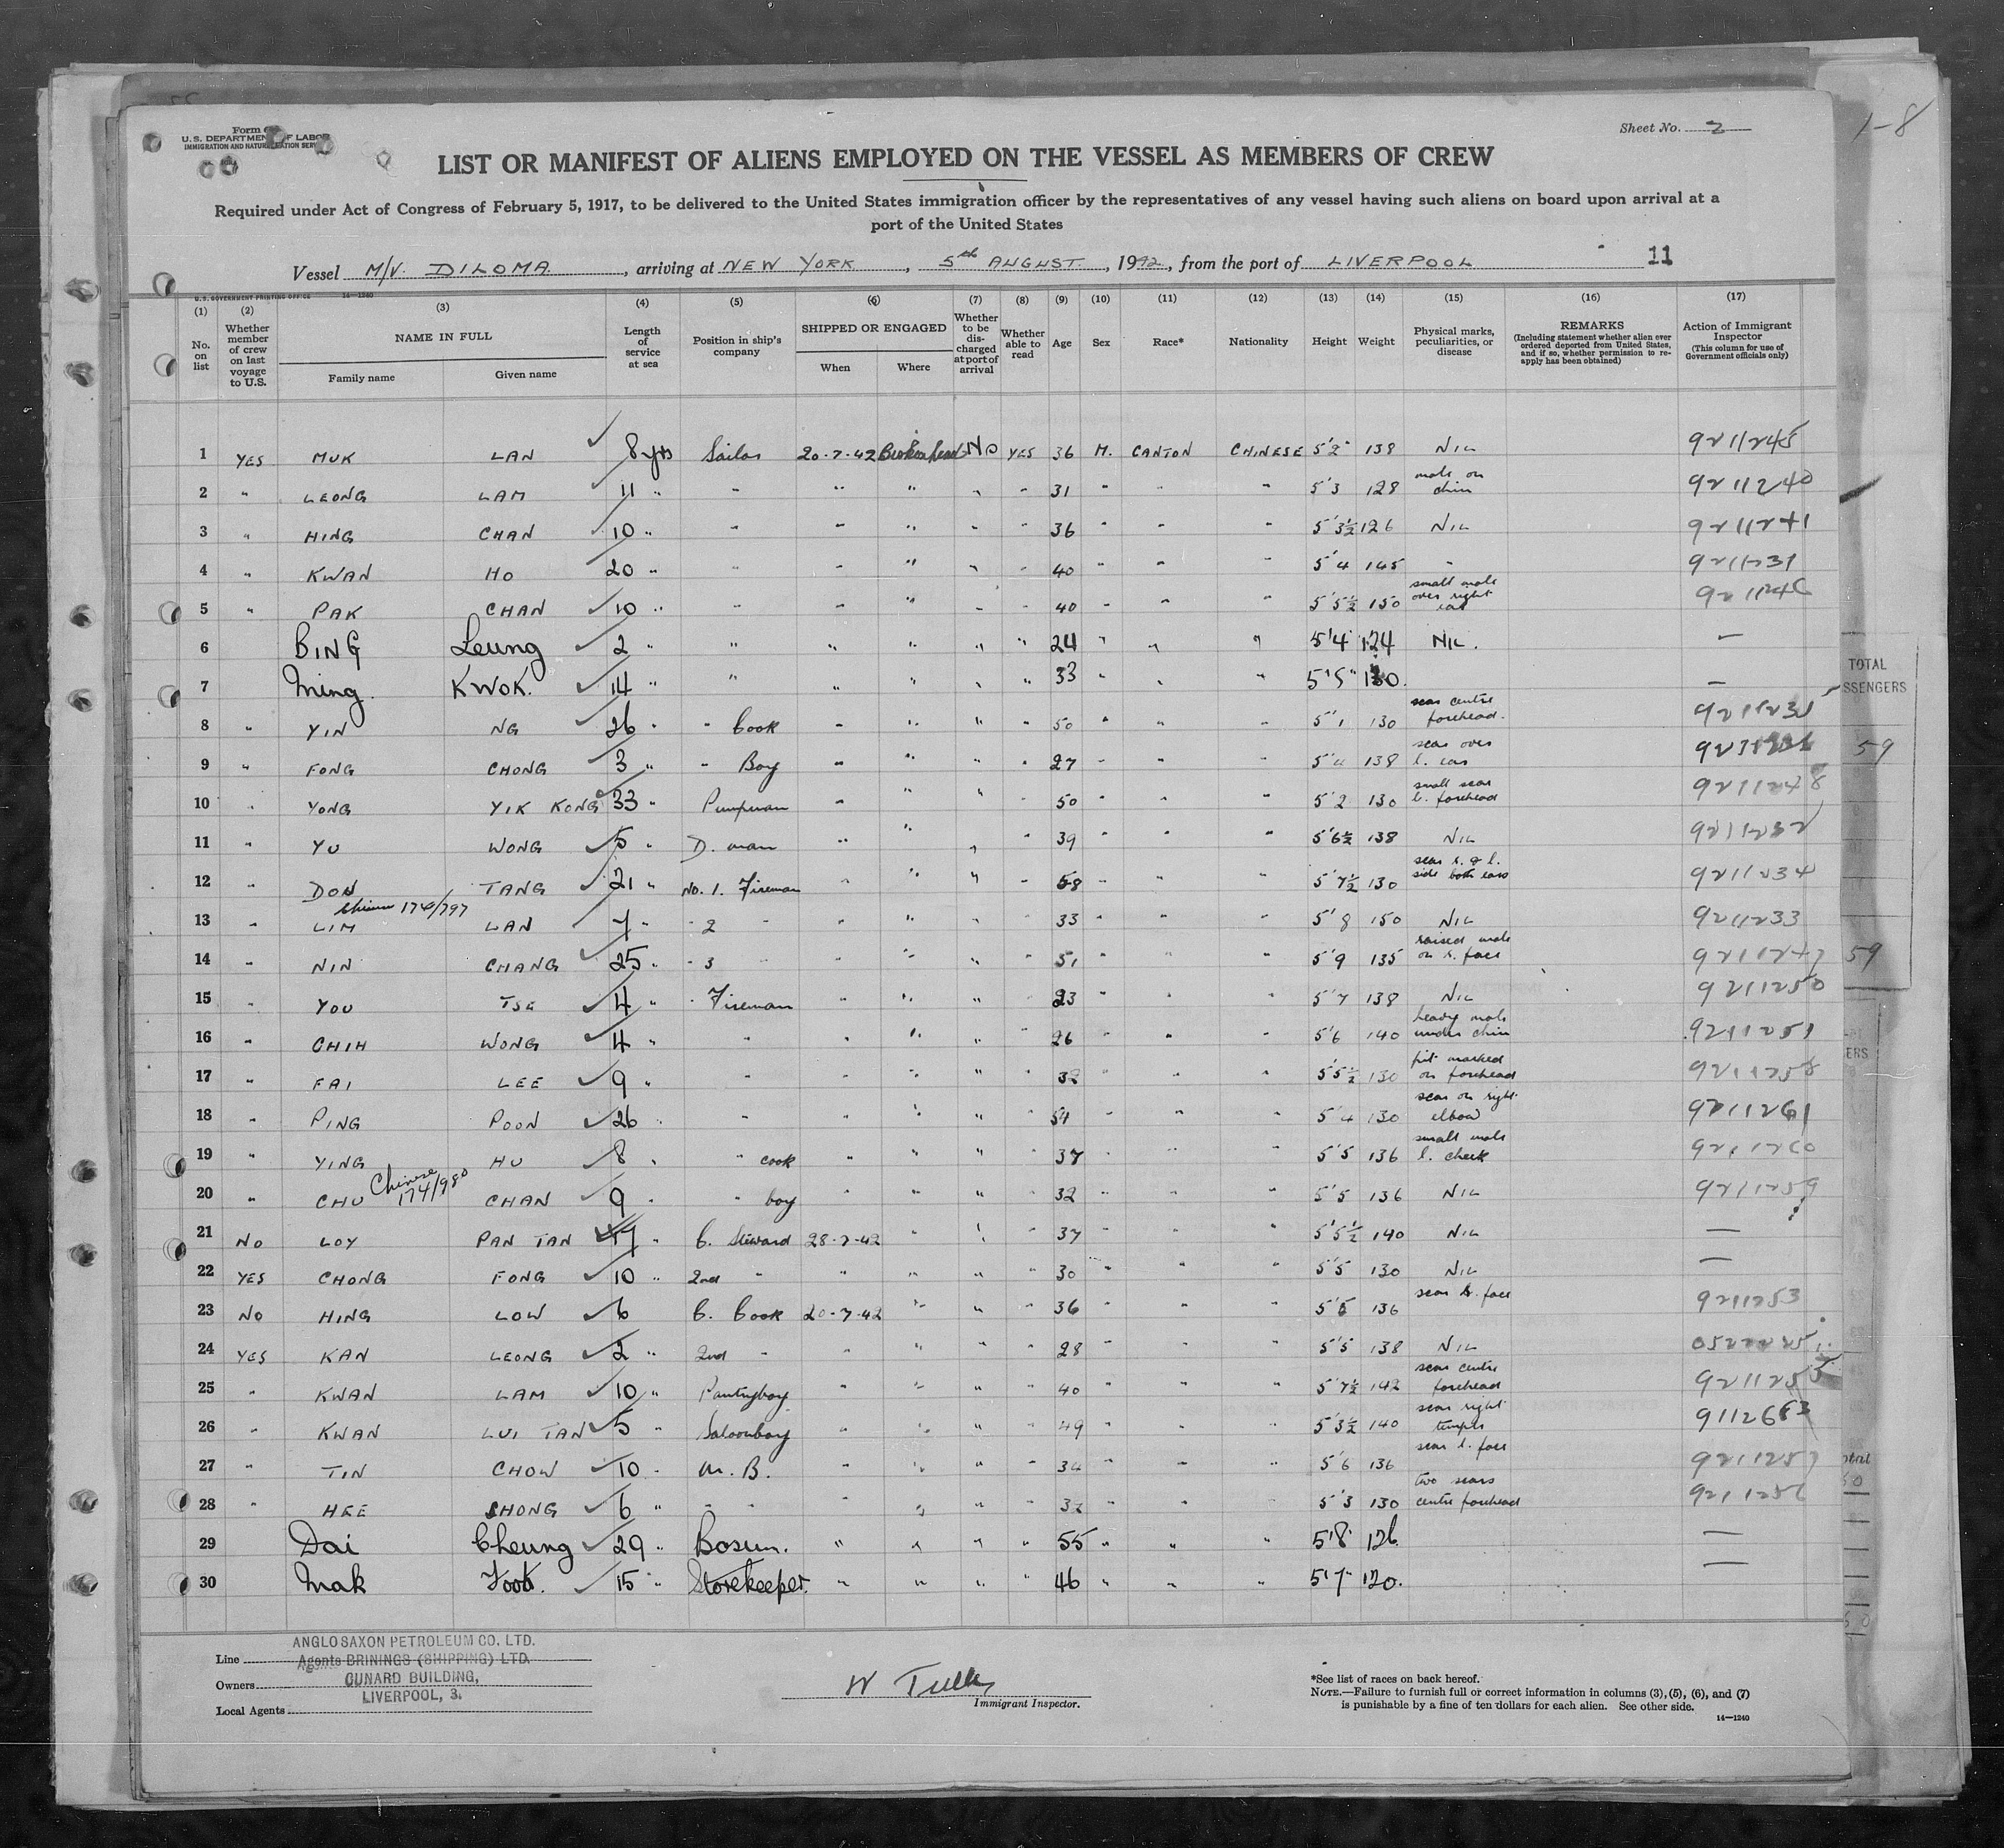 Sheet No. 2
1-8
U.S. DEPARTMENT OF LABOR
IMMIGRATION AND NATURALIZATION SERVICE
LIST OR MANIFEST OF ALIENS EMPLOYED ON THE VESSEL AS MEMBERS OF CREW
Required under Act of Congress of February 5, 1917, to be delivered to the United States immigration officer by the representatives of any vessel having such aliens on board upon arrival at a
port of the United States
Vessel M/V. DILOMA, arriving at NEW YORK, 5th AUGUST, 1942, from the port of LIVERPOOL 11
U.S. GOVERNMENT PRINTING OFFICE 14—1240
(1) (2) (3) (4) (5) (6) (7) (8) (9) (10) (11) (12) (13) (14) (15) (16) (17)
No. on list
Whether member of crew on last voyage to U.S.
NAME IN FULL
Family name Given name
Length of service at sea
Position in ship's company
SHIPPED OR ENGAGED
When Where
Whether to be discharged at port of arrival
Whether able to read
Age
Sex
Race*
Nationality
Height
Weight
Physical marks, peculiarities, or disease
REMARKS
(Including statement whether alien ever ordered deported from United States, and if so, whether permission to reapply has been obtained)
Action of Immigrant Inspector
(This column for use of Government officials only)
1 YES MUK LAN 8 yrs Sailor 20-7-42 Birkenhead NO YES 36 M. CANTON CHINESE 5'2" 138 NIL 9211245
2 " LEONG LAM 11 " " " " " " 31 " " " 5'3 128 mole on chin 9211240
3 " HING CHAN 10 " " " " 36 " " " 5'3½ 126 NIL 9211241
4 " KWAN HO 20 " " " " " " 40 " " " 5'4 145 "
5 " PAK CHAN 10 " " " " " " 40 " " " 5'5½ 150 small mole over right ear
6 BING Leung 2 " " " " " " 24 " " " 5'4 124 NIL. —
7 Ming. KWOK. 14 " " " " " " 33 " " " 5'5" 130. —
8 " YIN NG 26 " " Cook " " " " 50 " " " 5'1 130 scar centre forehead.
9 " FONG CHONG 3 " " Boy " " " " 27 " " " 5'4 138 scar over l. ear
10 " YONG YIK KONG 33 " Pumpman " " " " 50 " " " 5'2 130 small scar l. forehead 9211248
11 " YU WONG 5 " D. man " " " " 39 " " " 5'6½ 138 NIL 9211232
12 " DON TANG 21 " No. 1. Fireman " " " " 58 " " " 5'7½ 130 scar r. & l. side both ears 9211234
Chinese 174/797
13 " LIM LAN 7 " " 2 " " " " " 33 " " " 5'8 150 NIL 9211233
14 " NIN CHANG 25 " " 3 " " " " " 51 " " " 5'9 135 raised mole on r. face 9211247
15 " YOU TSE 4 " " Fireman " " " " 23 " " " 5'7 138 NIL 9211250
16 " CHIH WONG 4 " " " " " " 26 " " " 5'6 140 heavy mole under chin 9211251
17 " FAI LEE 9 " " " " " " 32 " " " 5'5½ 130 pit marked on forehead 9211258
18 " PING POON 26 " " " " " " 54 " " " 5'4 130 scar on right elbow 9211261
19 " YING HU 8 " " cook " " " " 37 " " " 5'5 136 small mole l. cheek 9211260
Chinese 174/980
20 " CHU CHAN 9 " " boy " " " " 32 " " " 5'5 136 NIL 9211259
21 NO LOY PAN TAN C. Steward 28-7-42 " " " 37 " " " 5'5½ 140 NIL —
22 YES CHONG FONG 10 " 2nd " " " " " 30 " " " 5'5 130 NIL —
23 NO HING LOW 6 " C. Cook 20-7-42 " " " 36 " " " 5'5 136 scar face 9211253
24 YES KAN LEONG 2 " 2nd " " " " " 28 " " " 5'5 138 NIL
25 " KWAN LAM 10 " Pantryboy " " " " 40 " " " 5'7½ 142 scar centre forehead 9211255
26 " KWAN LUI TAN 5 " Saloonboy " " " " 49 " " " 5'3½ 140 scar right temple
27 " TIN CHOW 10 " M. B. " " " " 34 " " " 5'6 136 scar l. face 9211257
28 " HEE SHONG 6 " " " " " " " 32 " " " 5'3 130 two scars centre forehead 9211256
29 Dai Cheung 29 " Bosun. " " " " 55 " " " 5'8" 126 —
30 Mak Fook. 15 " Storekeeper. " " " " 46 " " " 5'7" 120. —
TOTAL
59
59
Line
Owners
Local Agents
ANGLO SAXON PETROLEUM CO. LTD.
Agents BRININGS (SHIPPING) LTD.
CUNARD BUILDING,
LIVERPOOL, 3.
Immigrant Inspector.
*See list of races on back hereof.
NOTE.—Failure to furnish full or correct information in columns (3), (5), (6), and (7)
is punishable by a fine of ten dollars for each alien. See other side.
14—1240